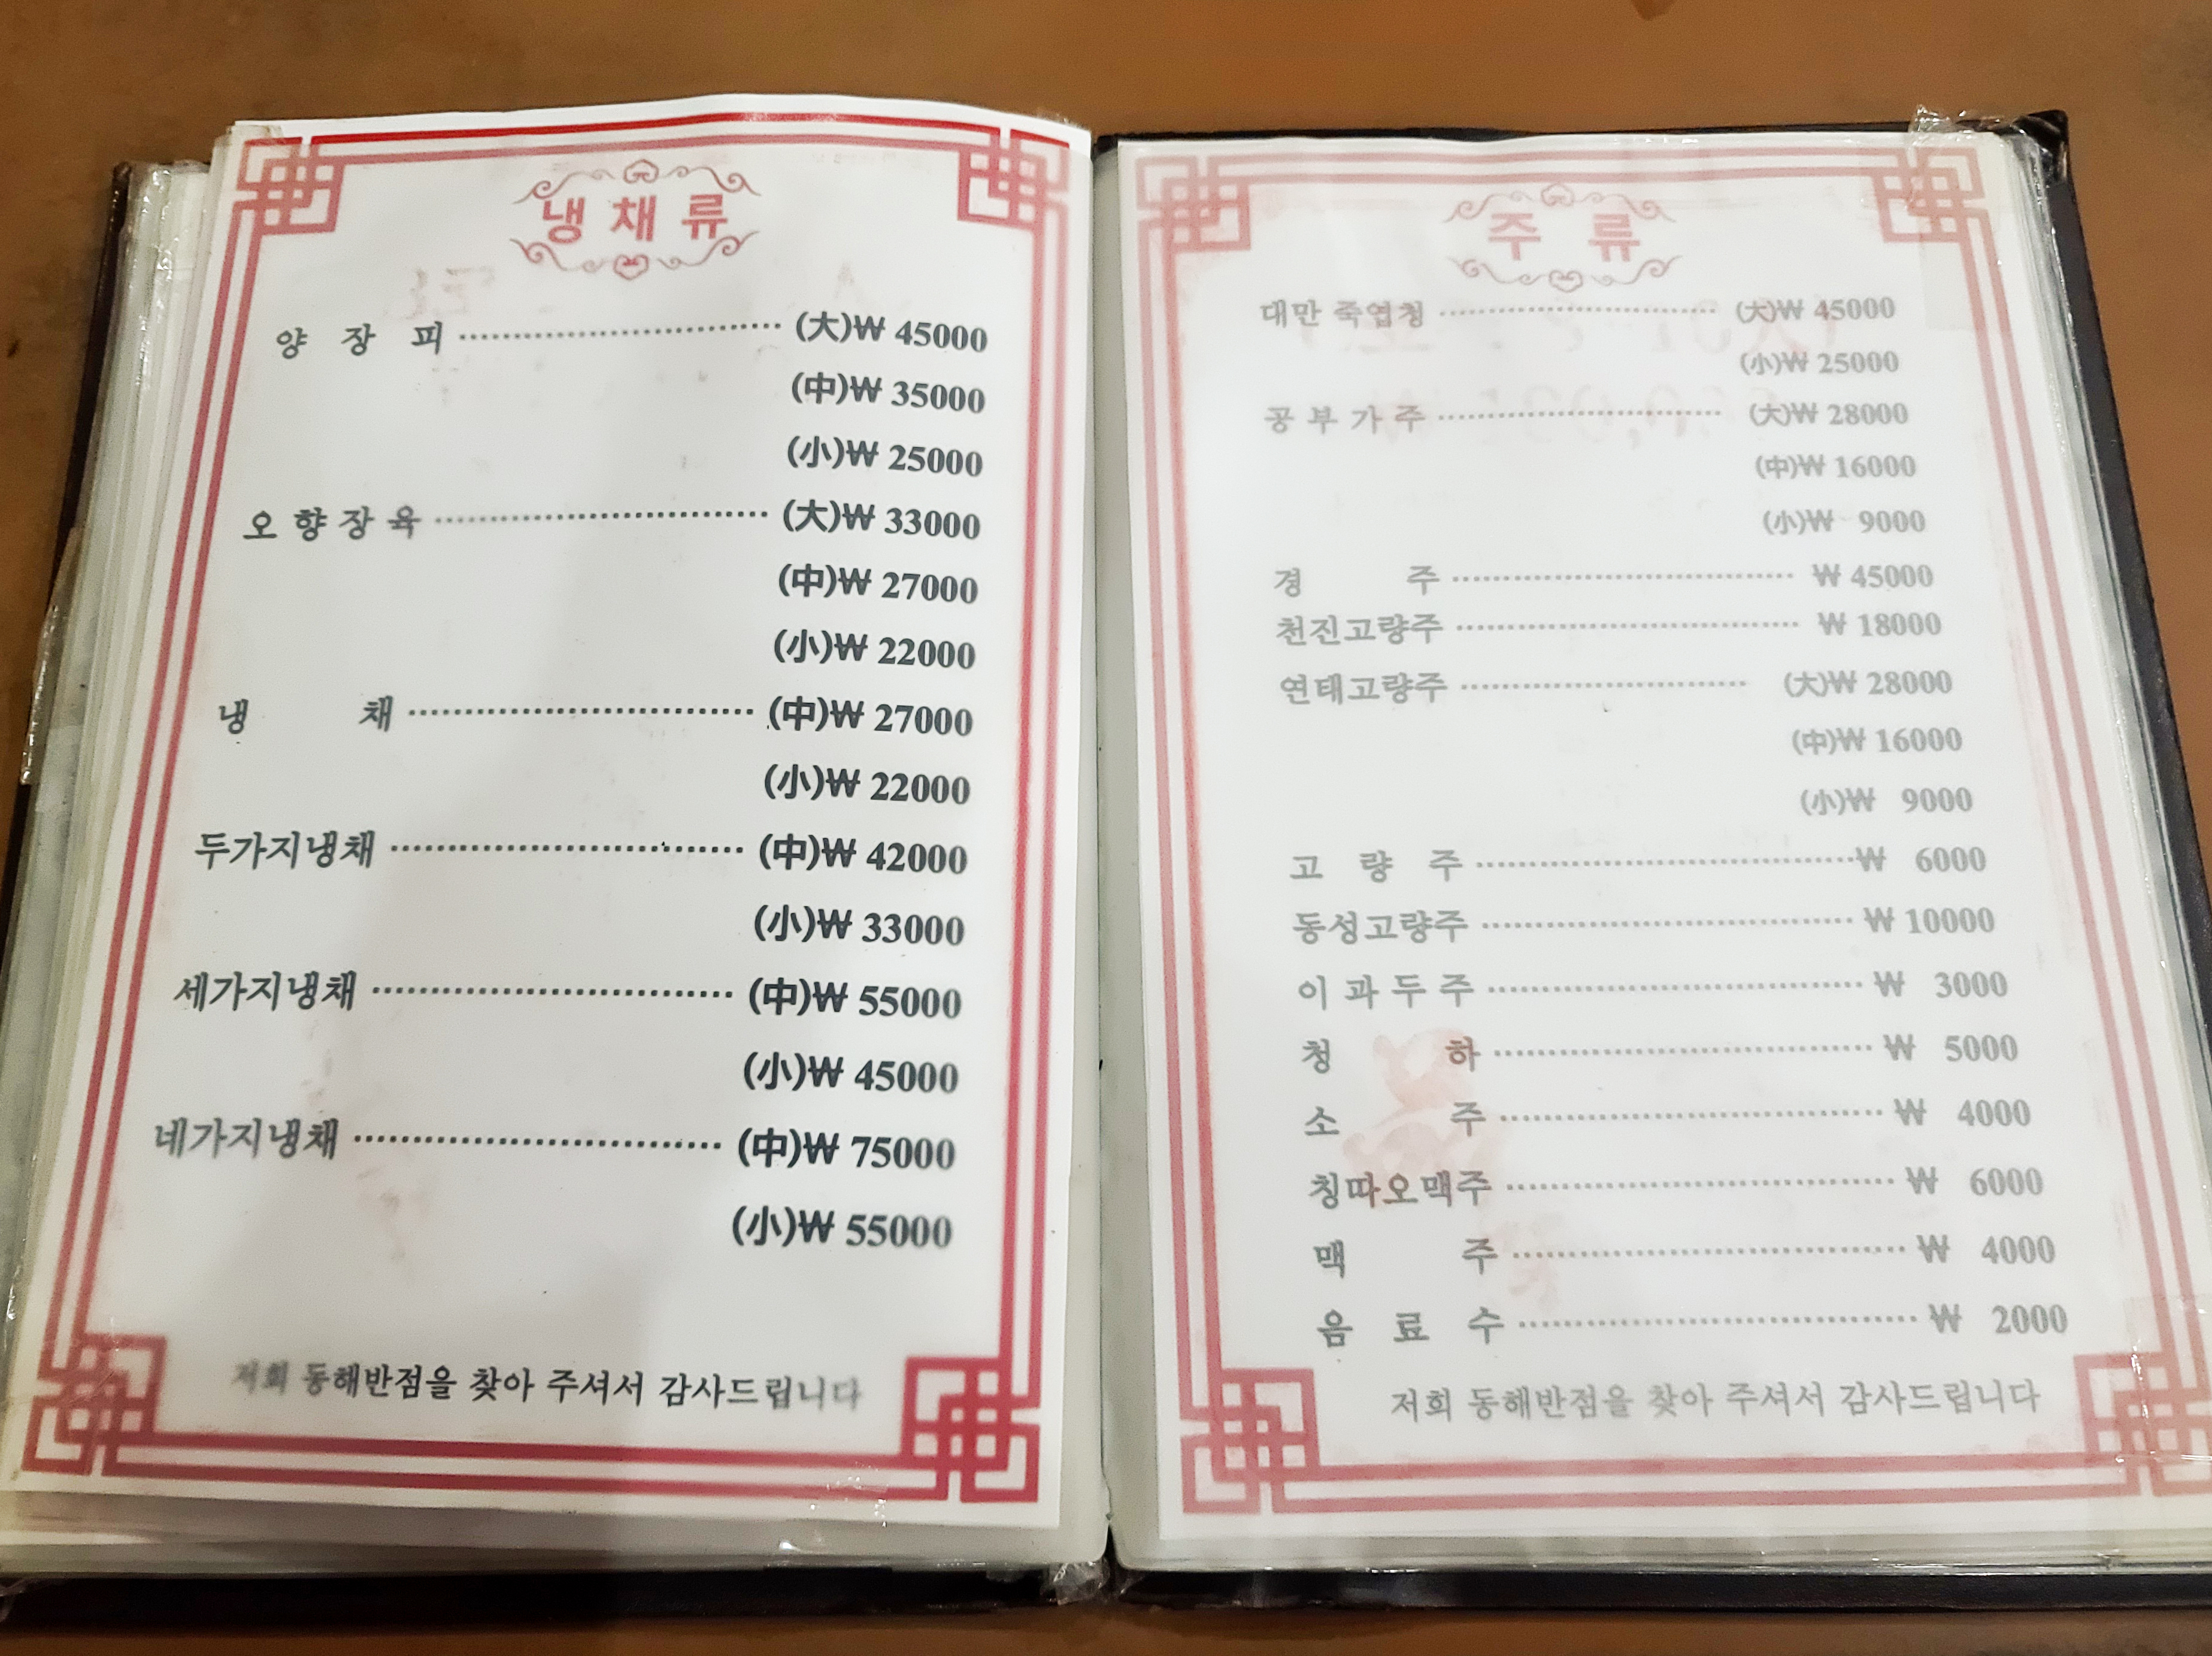 냉 채 류
양 장 피 (大)₩ 45000
(中)₩ 35000
(小)₩ 25000
오 향 장 육 (大)₩ 33000
(中)₩ 27000
(小)₩ 22000
냉 채 (中)₩ 27000
(小)₩ 22000
두가지냉채 (中)₩ 42000
(小)₩ 33000
세가지냉채 (中)₩ 55000
(小)₩ 45000
네가지냉채 (中)₩ 75000
(小)₩ 55000
저희 동해반점을 찾아 주셔서 감사드립니다
주 류
대만 죽엽청 (大)₩ 45000
(小)₩ 25000
공 부 가 주 (大)₩ 28000
(中)₩ 16000
(小)₩ 9000
경 주 ₩ 45000
천진고량주 ₩ 18000
연태고량주 (大)₩ 28000
(中)₩ 16000
(小)₩ 9000
고 량 주 ₩ 6000
동성고량주 ₩ 10000
이 과 두 주 ₩ 3000
청 하 ₩ 5000
소 주 ₩ 4000
칭따오맥주 ₩ 6000
맥 주 ₩ 4000
음 료 수 ₩ 2000
저희 동해반점을 찾아 주셔서 감사드립니다